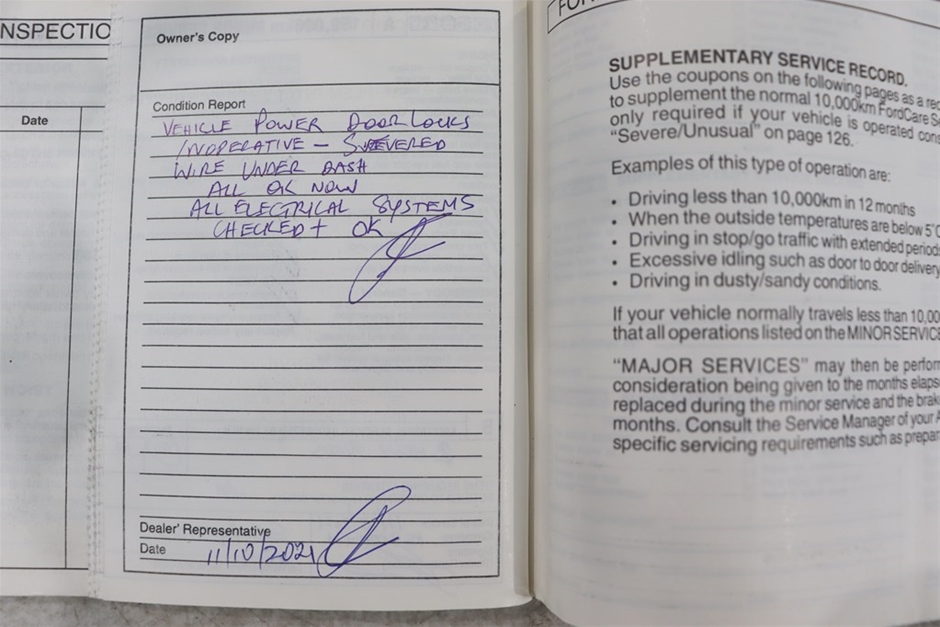 NSPECTIO
Date
Owner's Copy
Condition Report
VEHICLE POWER DOOR LOCKS
INOPERATIVE – SEVERED
WIRE UNDER DASH
ALL OK NOW
ALL ELECTRICAL SYSTEMS
CHECKED + OK
Dealer' Representative
Date 11/10/2021
SUPPLEMENTARY SERVICE RECORD.
Use the coupons on the following pages as a rec
to supplement the normal 10,000km FordCare Se
only required if your vehicle is operated cons
"Severe/Unusual" on page 126.
Examples of this type of operation are:
• Driving less than 10,000km in 12 months
• When the outside temperatures are below 5°C
• Driving in stop/go traffic with extended periods
• Excessive idling such as door to door delivery
• Driving in dusty/sandy conditions.
If your vehicle normally travels less than 10,00
that all operations listed on the MINOR SERVICE
"MAJOR SERVICES" may then be perform
consideration being given to the months elaps
replaced during the minor service and the brak
months. Consult the Service Manager of your A
specific servicing requirements such as prepar